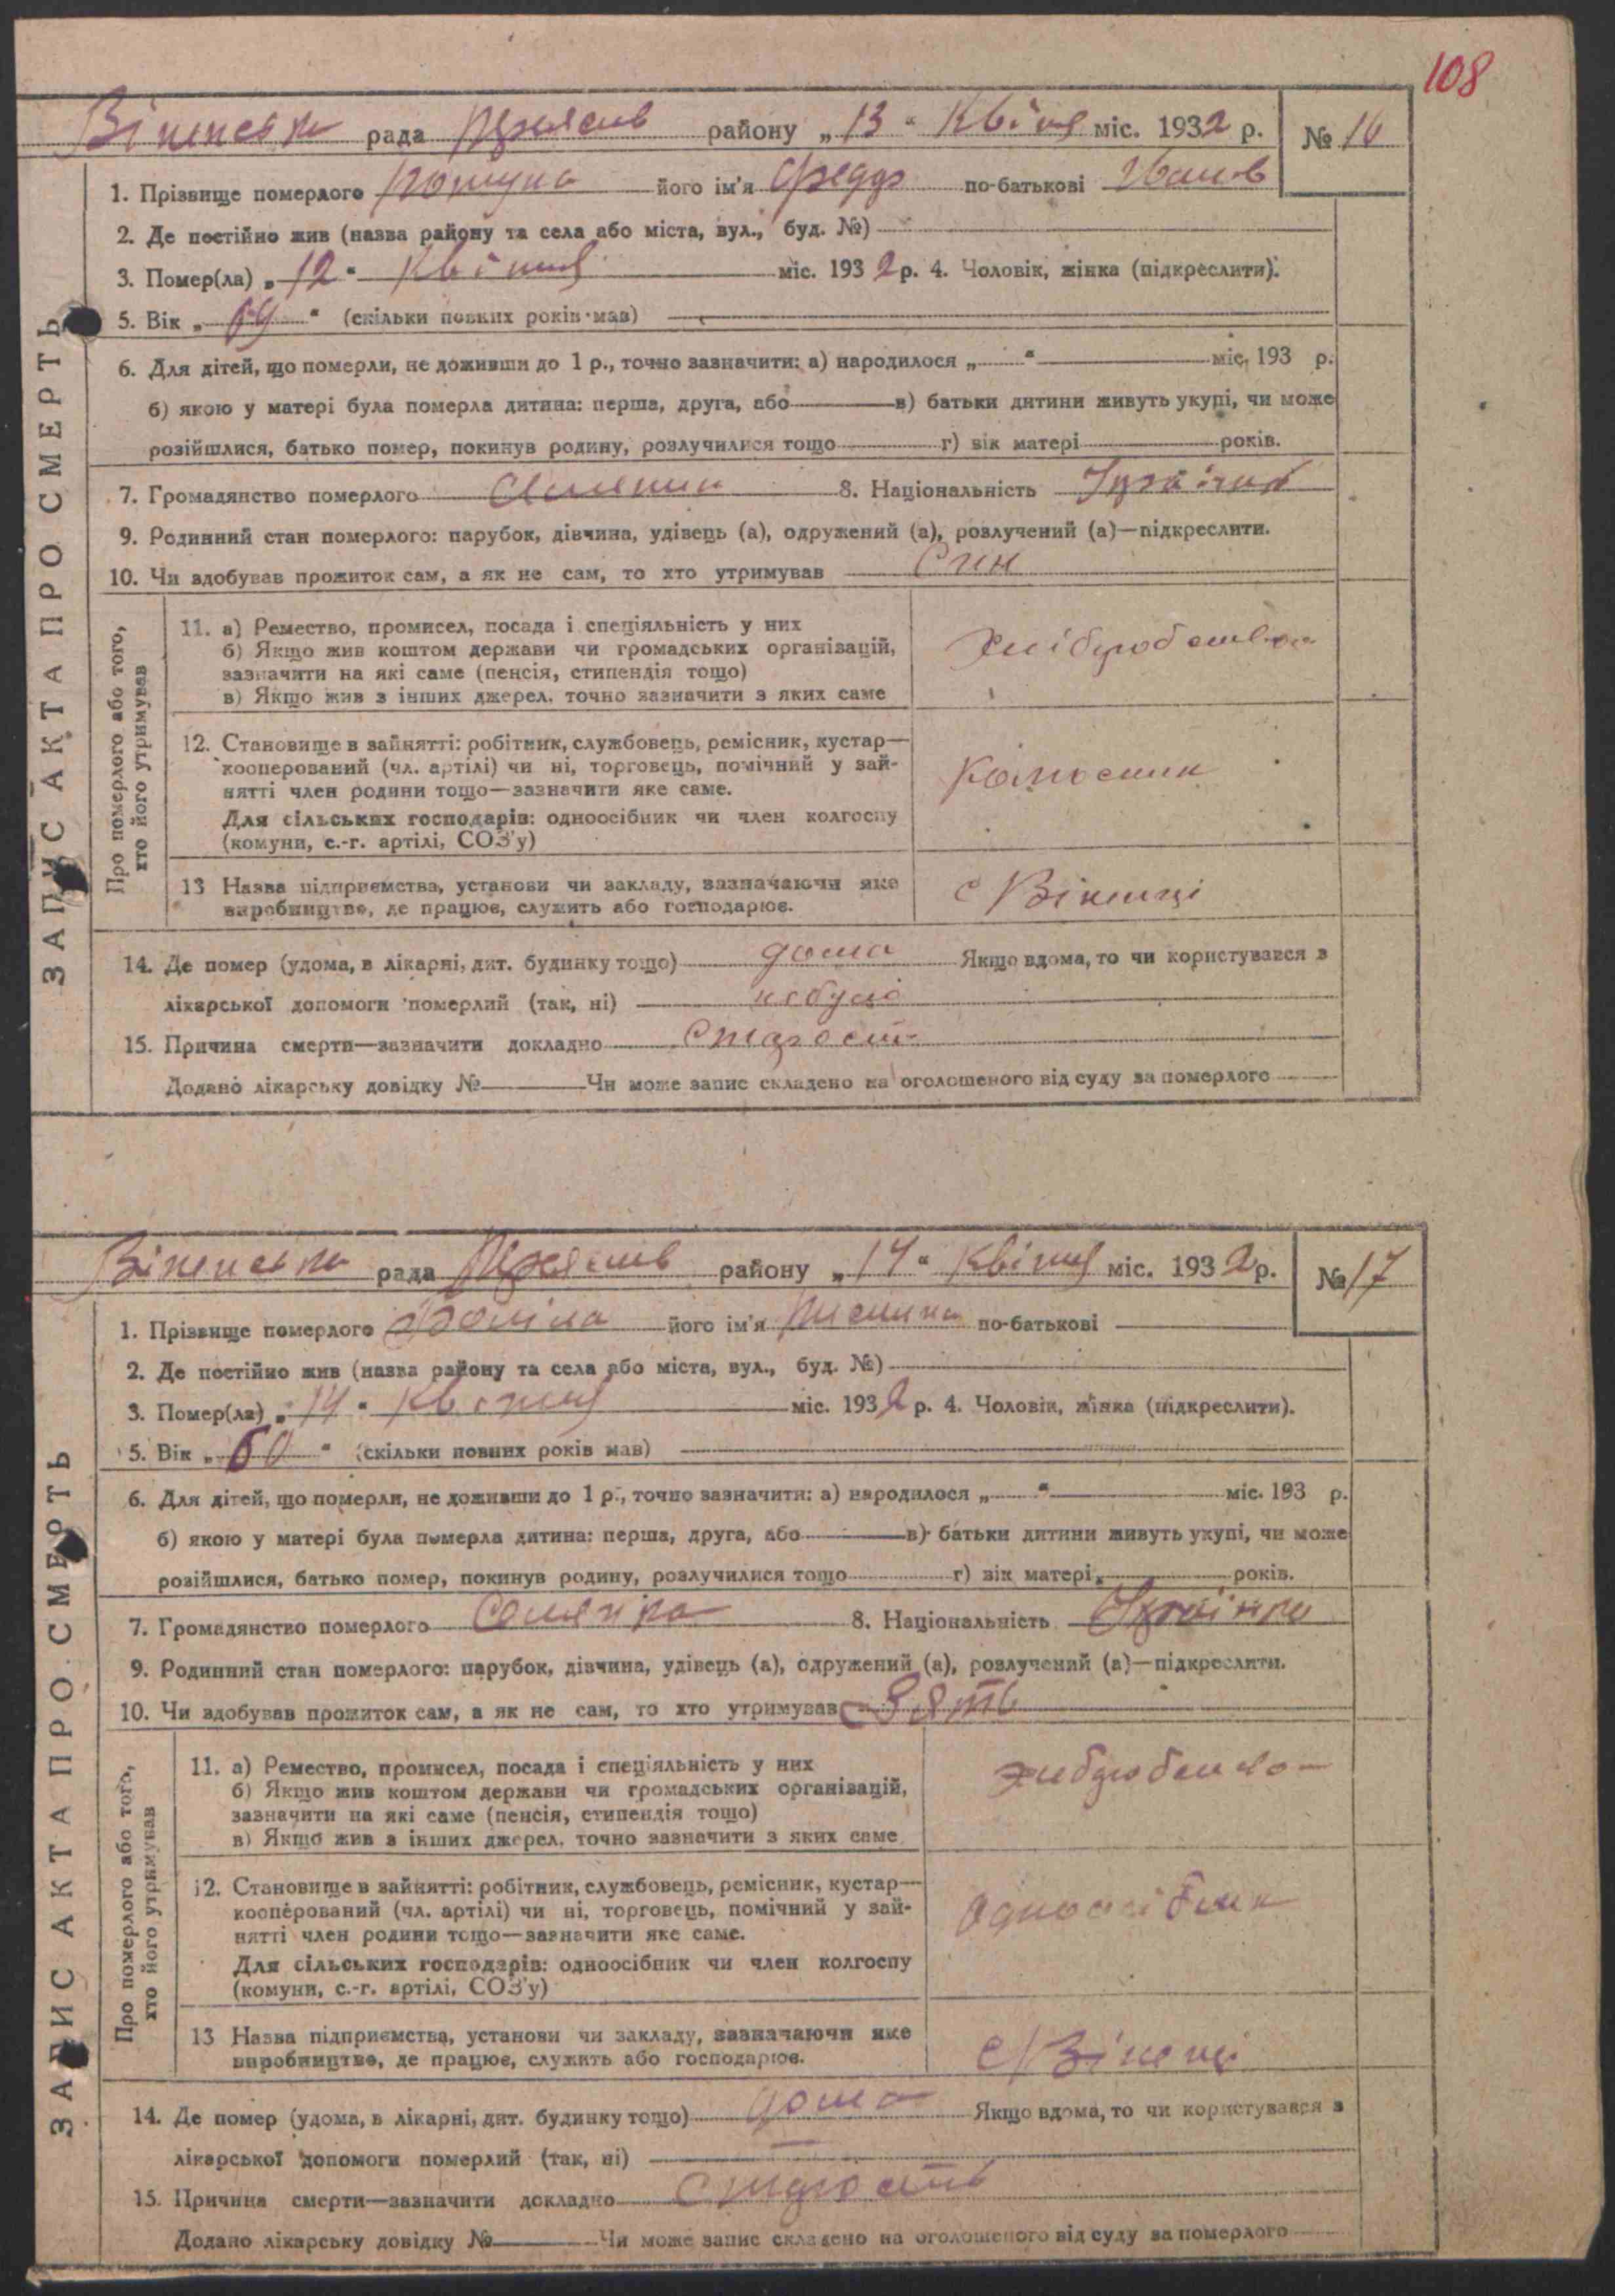 108
рада району „13“ Квітня міс. 1932 р. № 16
1. Прізвище померлого його ім'я Федір по-батькові Іванов
2. Де постійно жив (назва району та села або міста, вул., буд. №)
3. Помер(ла) „12“ Квітня міс. 1932 р. 4. Чоловік, жінка (підкреслити).
5. Вік „69“ (скільки повних років мав)
6. Для дітей, що померли, не доживши до 1 р., точно зазначити: а) народилося „ “ міс. 193 р.
б) якою у матері була померла дитина: перша, друга, або в) батьки дитини живуть укупі, чи може
розійшлися, батько помер, покинув родину, розлучилися тощо г) вік матері років.
7. Громадянство померлого 8. Національність
9. Родинний стан померлого: парубок, дівчина, удівець (а), одружений (а), розлучений (а)—підкреслити.
10. Чи здобував прожиток сам, а як не сам, то хто утримував Син
Про померлого або того, хто його утримував
11. а) Ремество, промисел, посада і спеціяльність у них
б) Якщо жив коштом держави чи громадських організацій,
зазначити на які саме (пенсія, стипендія тощо)
в) Якщо жив з інших джерел, точно зазначити з яких саме
12. Становище в зайнятті: робітник, службовець, ремісник, кустар—
кооперований (чл. артілі) чи ні, торговець, помічний у зай-
нятті член родини тощо—зазначити яке саме.
Для сільських господарів: одноосібник чи член колгоспу
(комуни, с.-г. артілі, СОЗ'у)
13 Назва підприємства, установи чи закладу, зазначаючи яке
виробництво, де працює, служить або господарює.
с Вінинці
14. Де помер (удома, в лікарні, дит. будинку тощо) дома Якщо вдома, то чи користувався з
лікарської допомоги померлий (так, ні)
15. Причина смерти—зазначити докладно старость
Додано лікарську довідку № Чи може запис складено на оголошеного від суду за померлого
ЗАПИС АКТА ПРО СМЕРТЬ
рада району „14“ Квітня міс. 1932 р. № 17
1. Прізвище померлого його ім'я по-батькові
2. Де постійно жив (назва району та села або міста, вул., буд. №)
3. Помер(ла) „14“ Квітня міс. 1932 р. 4. Чоловік, жінка (підкреслити).
5. Вік „60“ (скільки повних років мав)
6. Для дітей, що померли, не доживши до 1 р., точно зазначити: а) народилося „ “ міс. 193 р.
б) якою у матері була померла дитина: перша, друга, або в) батьки дитини живуть укупі, чи може
розійшлися, батько помер, покинув родину, розлучилися тощо г) вік матері років.
7. Громадянство померлого Селянка 8. Національність Українка
9. Родинний стан померлого: парубок, дівчина, удівець (а), одружений (а), розлучений (а)—підкреслити.
10. Чи здобував прожиток сам, а як не сам, то хто утримував зять
Про померлого або того, хто його утримував
11. а) Ремество, промисел, посада і спеціяльність у них
б) Якщо жив коштом держави чи громадських організацій,
зазначити на які саме (пенсія, стипендія тощо)
в) Якщо жив з інших джерел, точно зазначити з яких саме
12. Становище в зайнятті: робітник, службовець, ремісник, кустар—
кооперований (чл. артілі) чи ні, торговець, помічний у зай-
нятті член родини тощо—зазначити яке саме.
Для сільських господарів: одноосібник чи член колгоспу
(комуни, с.-г. артілі, СОЗ'у)
Одноосібник
13 Назва підприємства, установи чи закладу, зазначаючи яке
виробництво, де працює, служить або господарює.
с Вінинці
14. Де помер (удома, в лікарні, дит. будинку тощо) дома Якщо вдома, то чи користувався з
лікарської допомоги померлий (так, ні)
15. Причина смерти—зазначити докладно старость
Додано лікарську довідку № Чи може запис складено на оголошеного від суду за померлого
ЗАПИС АКТА ПРО СМЕРТЬ